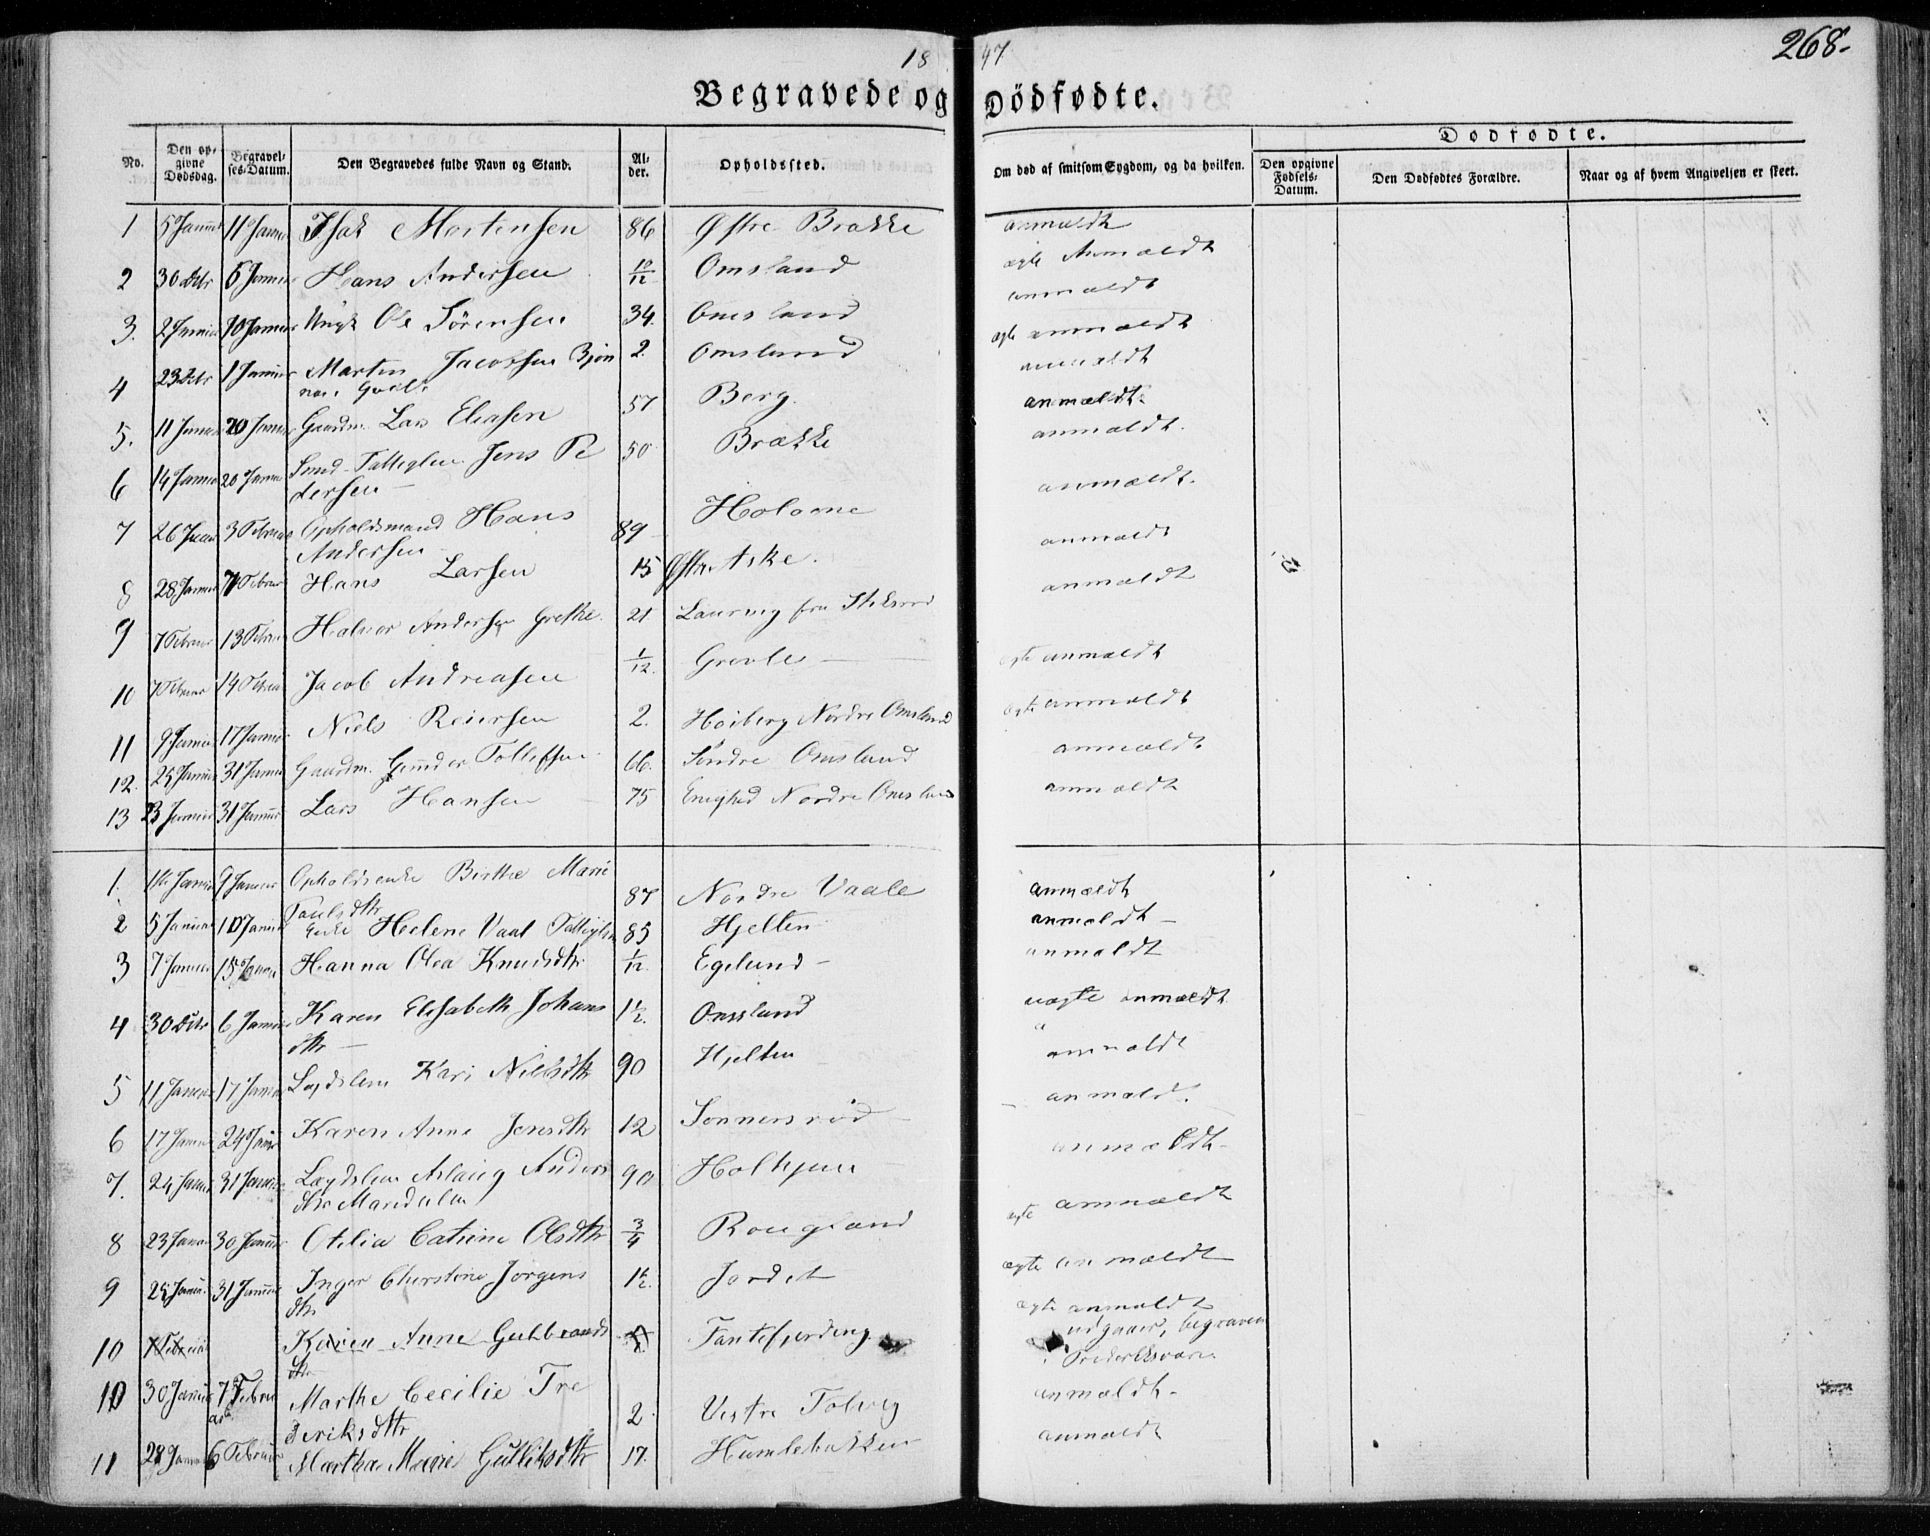 1847
268.
Begravede og Dödfødte.
No. Den opgivne Dødsdag. Begravelses-Datum. Den Begravedes fulde Navn og Stand. Alder. Opholdssted. Om død af smitsom Sygdom, og da hvilken. Dødfødte. Den opgivne Fødsels-Datum. Den Dødfødtes Forældre. Naar og af hvem Angivelsen er skeet.
1 5 Januar 11 Januar Isak Mortensen 86 Østre Brække anmældt
2 30 Decbr 6 Januar Hans Andersen 10/12 Omsland ægte Anmældt
3. 2 Januar 10 Januar Ungk Ole Sörensen 34. Omsland anmældt
4 23 Decbr 1 Januar Marten Jacobsen 2. Omsland ægte anmældt
5. 11 Januar 20 Januar Gaardm. Lars Eliasen 57 Berg. anmældt
6 14 Januar 20 Januar Jens Pedersen 50 Brække anmældt.
7 26 Januar 3 Februar Opholdsmand Hans Andersen 89 anmældt.
8 28 Januar 7 Februar Hans Larsen 15 Østre Aske. anmældt
9 7 Februar 13 Februar Halvor Andersen 21 Laurvig fra anmældt
10 7 Februar 14 Februar Jacob Andreasen 1/12. Grevle ægte anmældt
11 9 Januar 17 Januar Niels Reiersen 2. Høiberg Nordre Omsland ægte anmældt
12. 25 Januar 31 Januar Gaardm. Tollefsen 66. Söndre Omsland anmældt
13 23 Januar 31 Januar Lars Hansen 75 Enighed Nordre Omsland anmældt
1. Januar 9 Januar Opholdsenke Birthe Marie Paulsdtr 87 Nordre Vaale anmældt
2 5 Januar 10 Januar Enke Helene 85 Hjelten anmældt
3 7 Januar 15 Januar Hanna Olea Knudsdtr 1/12. Egelund anmældt
4 30 Decbr 6 Januar Karen Elisabeth Johansdtr 1½. Omsland uægte anmældt
5 11 Januar 17 Januar Lægdslem Kari Nielsdtr 90 Hjelten anmældt
6 17 Januar 24 Januar Karen Anne Jensdtr 12 Sönnersröd anmældt.
7. 24 Januar 31 Januar Lægdslem Aslaug Andersdtr 90 anmældt
8 23 Januar 30 Januar Otilia Catrine Olsdtr 3/4 Roligland ægte anmældt
9 25 Januar 31 Januar Inger Christine Jörgensdtr 1½. Jordet ægte anmældt
10 Februar Karen Anne Gulbrandsdtr Fantefjerding ægte anmældt udgaaer, begraven i Frederiksværn
10 30 Januar 7 Februar Marthe Cecilie Frederiksdtr 2 Vestre Tolvig anmældt
11 28 Januar 6 Februar Martha Marie Gulliksdtr 17. Humlebakken anmældt